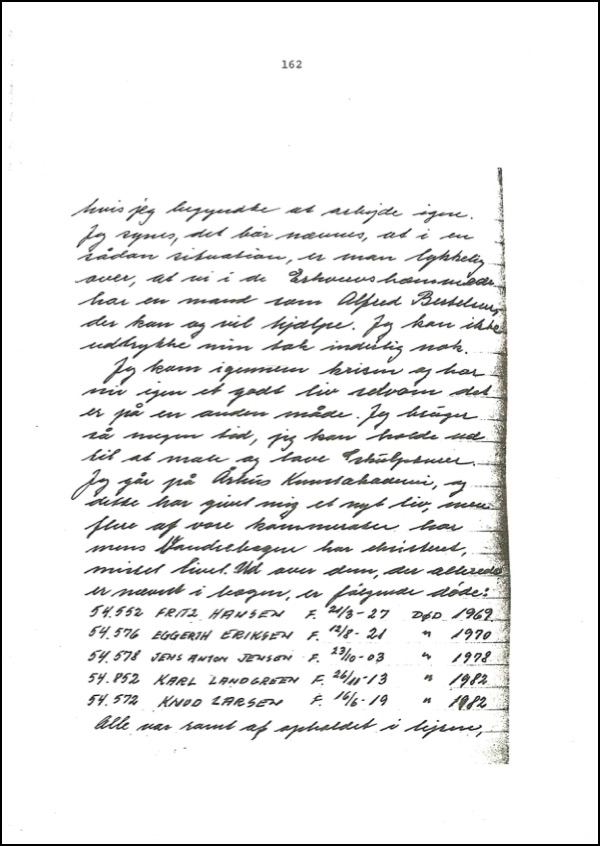 162
hvis jeg begyndte at arbejde igen.
Jeg synes, det bør nævnes, at i en
sådan situation, er man lykkelig
over, at vi i de Erhvervshæmmede
har en mand som Alfred Bertelsen,
der kan og vil hjælpe. Jeg kan ikke
udtrykke min tak inderlig nok.
Jeg kom igennem krisen og har
nu igen et godt liv selvom det
er på en anden måde. Jeg bruger
så megen tid, jeg kan holde ud
til at male og lave Skulpturer.
Jeg går på Århus Kunstakademi, og
dette har givet mig et nyt liv, men
flere af vore kammerater har
mens Vandrebogen har eksisteret,
mistet livet. Ud over dem, der allerede
er nævnt i bogen, er følgende døde:
54.552 FRITZ HANSEN F. 21/3-27 DØD 1969
54.576 EGGERTH ERIKSEN F. 12/8-21 " 1970
54.578 JENS ANTON JENSEN F. 23/10-03 " 1978
54.852 KARL LANDGREEN F. 26/11-13 " 1982
54.572 KNUD LARSEN F. 16/6-19 " 1982
Alle var ramt af opholdet i lejren,